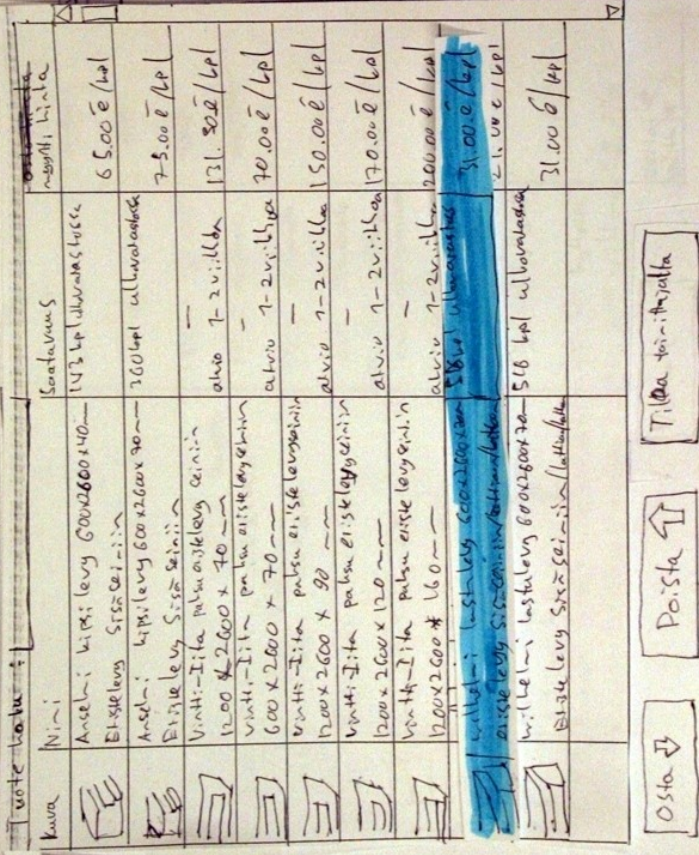 Tuote haku :
Kuva
Nimi
Saatavuus
myynti hinta
Anselmi kipsilevy 600x2600x40mm
Eristelevy Sisäseiniin
143 kpl ulkovarastossa
65.00 € /kpl
Anselmi kipsilevy 600x2600x70mm
Eristelevy Sisäseiniin
260 kpl ulkovarastossa
75.00 € /kpl
Vintti-Iita paksu eristelevy seiniin
1200 x 2600 x 70mm
arvio 1-2 viikkoa
131.50 € /kpl
Vintti-Iita paksu eristelevy seiniin
600 x 2600 x 70mm
arvio 1-2 viikkoa
70.00 € /kpl
Vintti-Iita paksu eristelevy seiniin
1200 x 2600 x 90 mm
arvio 1-2 viikkoa
150.00 € /kpl
Vintti-Iita paksu eristelevy seiniin
1200 x 2600 x 120mm
arvio 1-2 viikkoa
170.00 € /kpl
Vintti-Iita paksu eristelevy seiniin
1200x2600x 160mm
arvio 1-2 viikkoa
200.00 € /kpl
Wilhelmi lastulevy 600x2600x
eristelevy Sisäseiniin/lattiaan/kattoon
518 kpl ulkovarastossa
31.00 € /kpl
21.00 € /kpl
Wilhelmi lastulevy 600x2600x70mm
Eristelevy Sisäseiniin/lattiaan/
518 kpl ulkovarastossa
31.00 € /kpl
Osta
Poista
Tilaa toimittajalta